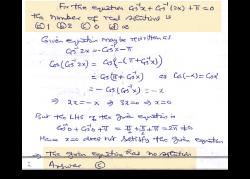 For the equation Cos⁻¹x + Cos⁻¹(2x) + π = 0
the number of real solutions is
(a) 1 (b) 2 (c) 0 (d) ∞
Given equation may be rewritten as
Cos⁻¹2x = -Cos⁻¹x - π
Cos(Cos⁻¹2x) = Cos{-(π + Cos⁻¹x)}
= Cos(π + Cos⁻¹x) as Cos(-x) = Cosx
= -Cos(Cos⁻¹x) = -x
⇒ 2x = -x ⇒ 3x = 0 ⇒ x = 0
But the LHS of the given equation is
Cos⁻¹0 + Cos⁻¹0 + π = π/2 + π/2 + π = 2π ≠ 0
Hence x = 0 does not satisfy the given equation
⇒ The given equation has no solution
Answer (c)